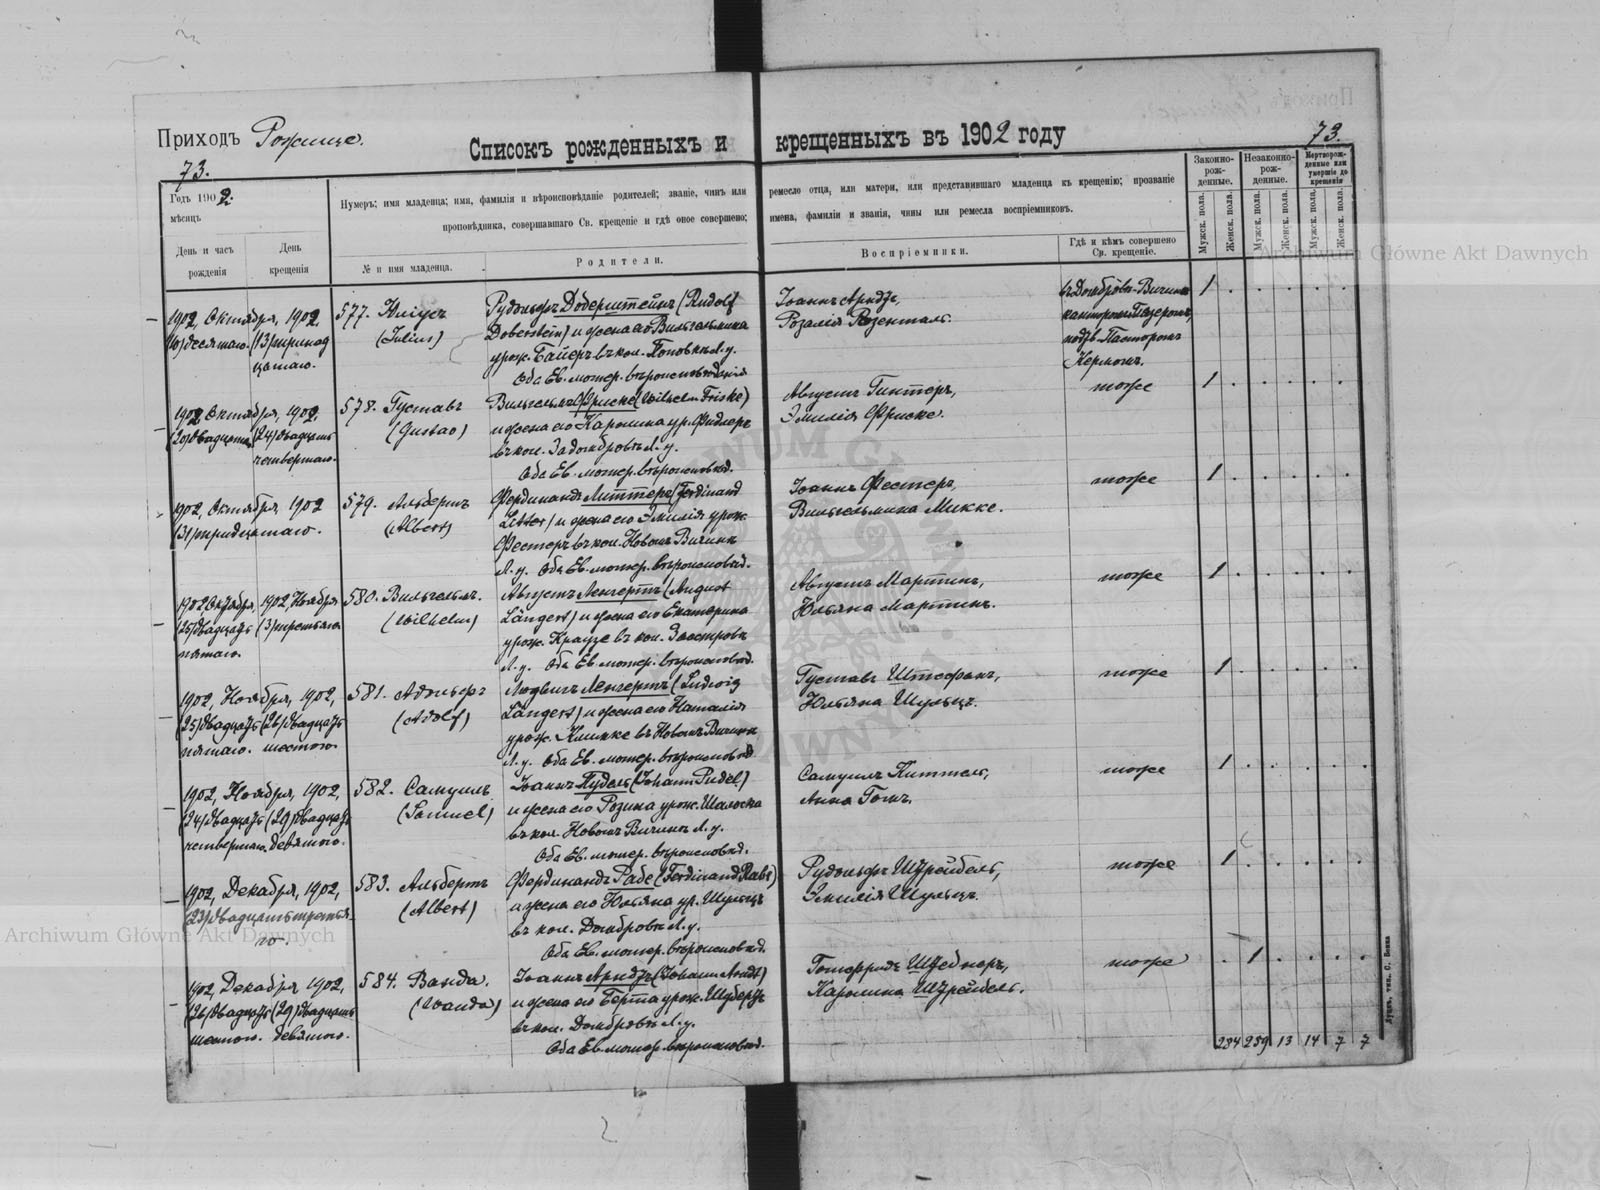 Приходъ Рожище.
Списокъ рожденныхъ и крещенныхъ въ 1902 году
73.
73.
Годъ 1902.
мѣсяцъ
День и часъ рожденія
День крещенія
Нумеръ; имя младенца; имя, фамилія и вѣроисповѣданіе родителей; званіе, чинъ или ремесло отца, или матери, или представившаго младенца къ крещенію; прозваніе
проповѣдника, совершавшаго Св. крещеніе и гдѣ оное совершено; имена, фамиліи и званія, чины или ремесла воспріемниковъ.
№ и имя младенца.
Родители.
Воспріемники.
Гдѣ и кѣмъ совершено Св. крещеніе.
Законнорожденные.
Незаконнорожденные.
Мертворожденные или умершіе до крещенія
Мужск. пола.
Женск. пола.
Мужск. пола.
Женск. пола.
Мужск. пола.
Женск. пола.
1902, Октября, 1902,
(10) десятаго. (13) тринад
цатаго.
577. Юліусъ
(Julius)
Рудольфъ Доберштейнъ (Rudolf
Doberstein) и жена его Вильгельмина
урож. Байеръ въ кол.
Оба Ев. лютер. вѣроисповѣданія
Іоаннъ Арндтъ,
Розалія Розенталь.
въ Домбровѣ-Вичинѣ
канторомъ
Пасторомъ
Керномъ.
1
1902 Октября, 1902,
(20) двадцатаго (24) двадцать
четвертаго.
578. Густавъ
(Gustav)
Вильгельмъ Фриске (Wilhelm Friske)
и жена его Каролина ур. Фидлеръ
въ кол. Л. у.
Оба Ев. лютер. вѣроисповѣд.
Августъ Гинтеръ,
Эмилія Фриске.
тоже
1
1902, Октября, 1902
(31) тридцатаго.
579. Альбертъ
(Albert)
Фердинандъ Литтеръ (Ferdinand
Litter) и жена его Эмилія урож.
Фестеръ въ кол. Новомъ Вичинѣ
Л. у. Оба Ев. лютер. вѣроисповѣд.
Іоаннъ Фестеръ,
Вильгельмина Микке.
тоже
1
1902 Октября, 1902, Ноября
(25) двадцать (3) третьяго
пятаго.
580. Вильгельмъ.
(Wilhelm)
Августъ Ленгертъ (August
Längert) и жена его Екатерина
урож. Краузе въ кол.
Л. у. Оба Ев. лютер. вѣроисповѣд.
Августъ Мартинъ,
Юльяна Мартинъ.
тоже
1
1902, Ноября, 1902,
(25) двадцать (26) двадцать
пятаго. шестого.
581. Адольфъ
(Adolf)
Людвигъ Ленгертъ (Ludwig
Längert) и жена его Наталія
урож. Климке въ Новомъ Вичинѣ
Л. у. Оба Ев. лютер. вѣроисповѣд
Густавъ Штефанъ,
Юльяна Шульцъ.
тоже
1
1902, Ноября, 1902,
(24) двадцать (29) двадцать
четвертаго. девятаго.
582. Самуилъ
(Samuel)
Іоаннъ Пудель (Johann Pudel)
и жена его Розина урож.
въ кол. Новомъ Вичинѣ Л. у.
Оба Ев. лютер. вѣроисповѣд.
Самуилъ Киттель,
Анна
тоже
1
1902, Декабря, 1902,
(23) двадцать третья-
го.
583. Альбертъ
(Albert)
Фердинандъ Рабе (Ferdinand Rabe)
и жена его Юльяна ур. Шульцъ
въ кол. Домбровѣ Л. у.
Оба Ев. лютер. вѣроисповѣд.
Рудольфъ Штрейбель,
Эмилія Шульцъ.
тоже
1
1902, Декабря 1902,
(26) двадцать (29) двадцать
шестого. девятаго.
584. Ванда.
(Wanda)
Іоаннъ Арндтъ (Johann Arndt)
и жена его Берта урож. Шубертъ
въ кол. Домбровѣ Л. у.
Оба Ев. лютер. вѣроисповѣд.
Готфридъ
Каролина Штрейбель.
тоже
1
284 259 13 14 7 7
Archiwum Główne Akt Dawnych
Archiwum Główne Akt Dawnych